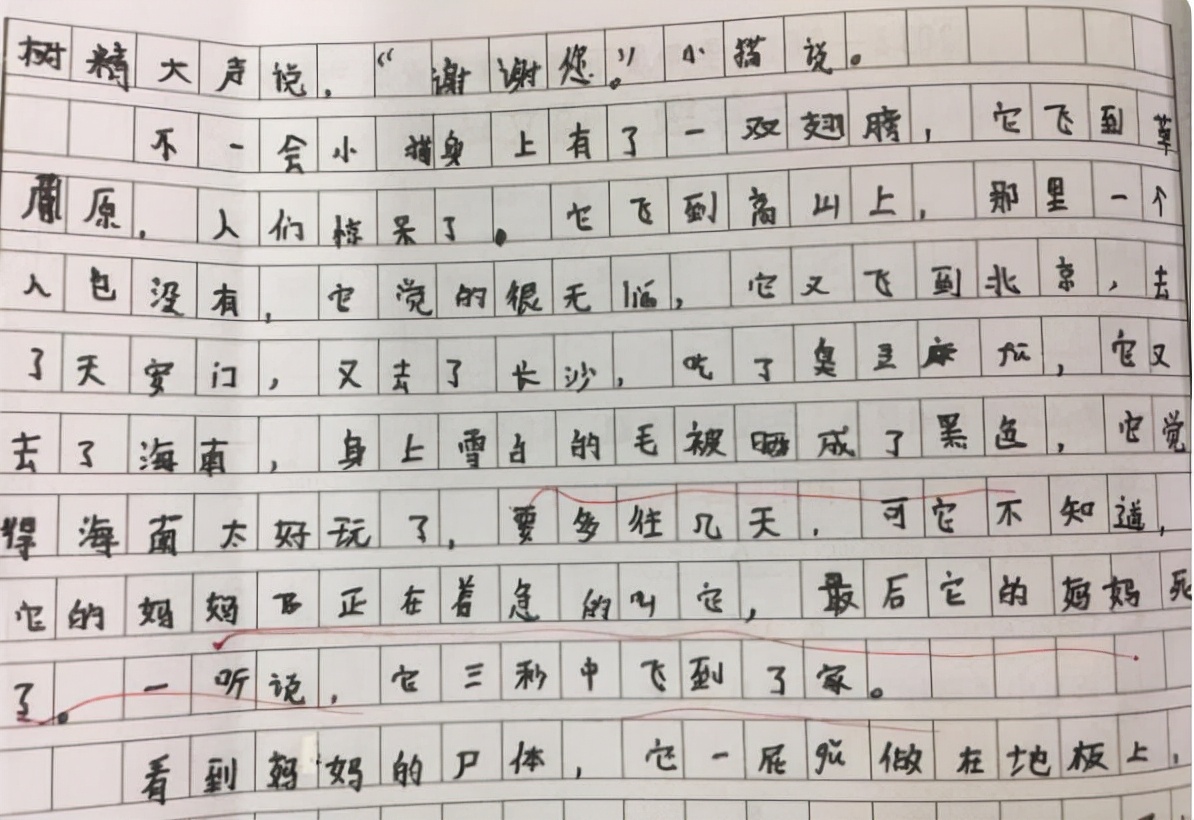 树精大声说，“谢谢您。”小猫说。
不一会小猫身上有了一双翅膀，它飞到草
原，人们惊呆了。它飞到高山上，那里一个
人也没有，它觉的很无恼，它又飞到北京，去
了天安门，又去了长沙，吃了臭豆腐fǔ，它又
去了海南，身上雪白的毛被晒成了黑色，它觉
得海南太好玩了，要多住几天，可它不知道，
它的妈妈正在着急的叫它，最后它的妈妈死
了。一听说，它三秒中飞到了家。
看到妈妈的尸体，它一屁gǔ做在地板上，